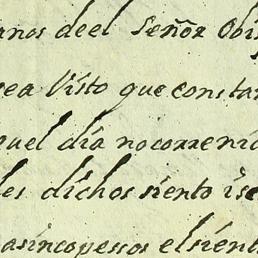 anos deel señor obis
cea Visto que constan
quel dia nocorreni
les dichos siento ise
asincopessos elsient